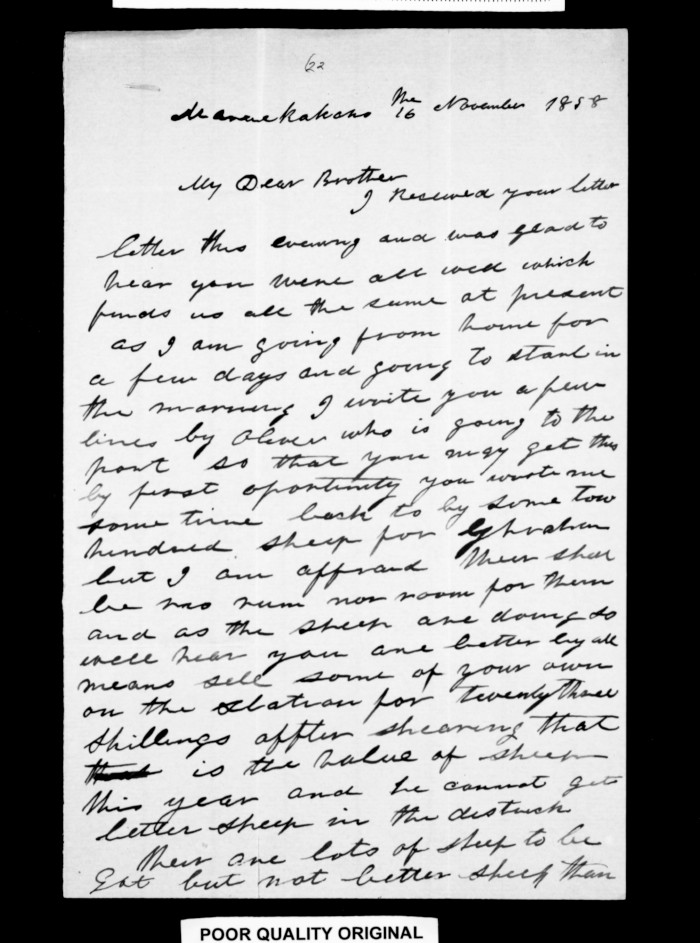 22
Maraekakaho the 16 November 1858
My Dear Brother
I Received your letter
letter this evening and was glad to
hear you were all well which
finds us all the same at present
as I am going from home for
a few days and going to start in
the morning I write you a few
lines by Oliver who is going to the
port so that you may get this
by first oportunity you wrote me
some time back to by some tow
hundred sheep for
but I am affraid their shall
be no rum nor room for them
and as the sheep are doing so
well hear you are better by all
means sell some of your own
on the Station for twenty three
shillings affter shearing that
is the value of sheep
this year and he cannot get
better sheep in the districk
their are lots of sheep to be
Got but not better sheep than
POOR QUALITY ORIGINAL